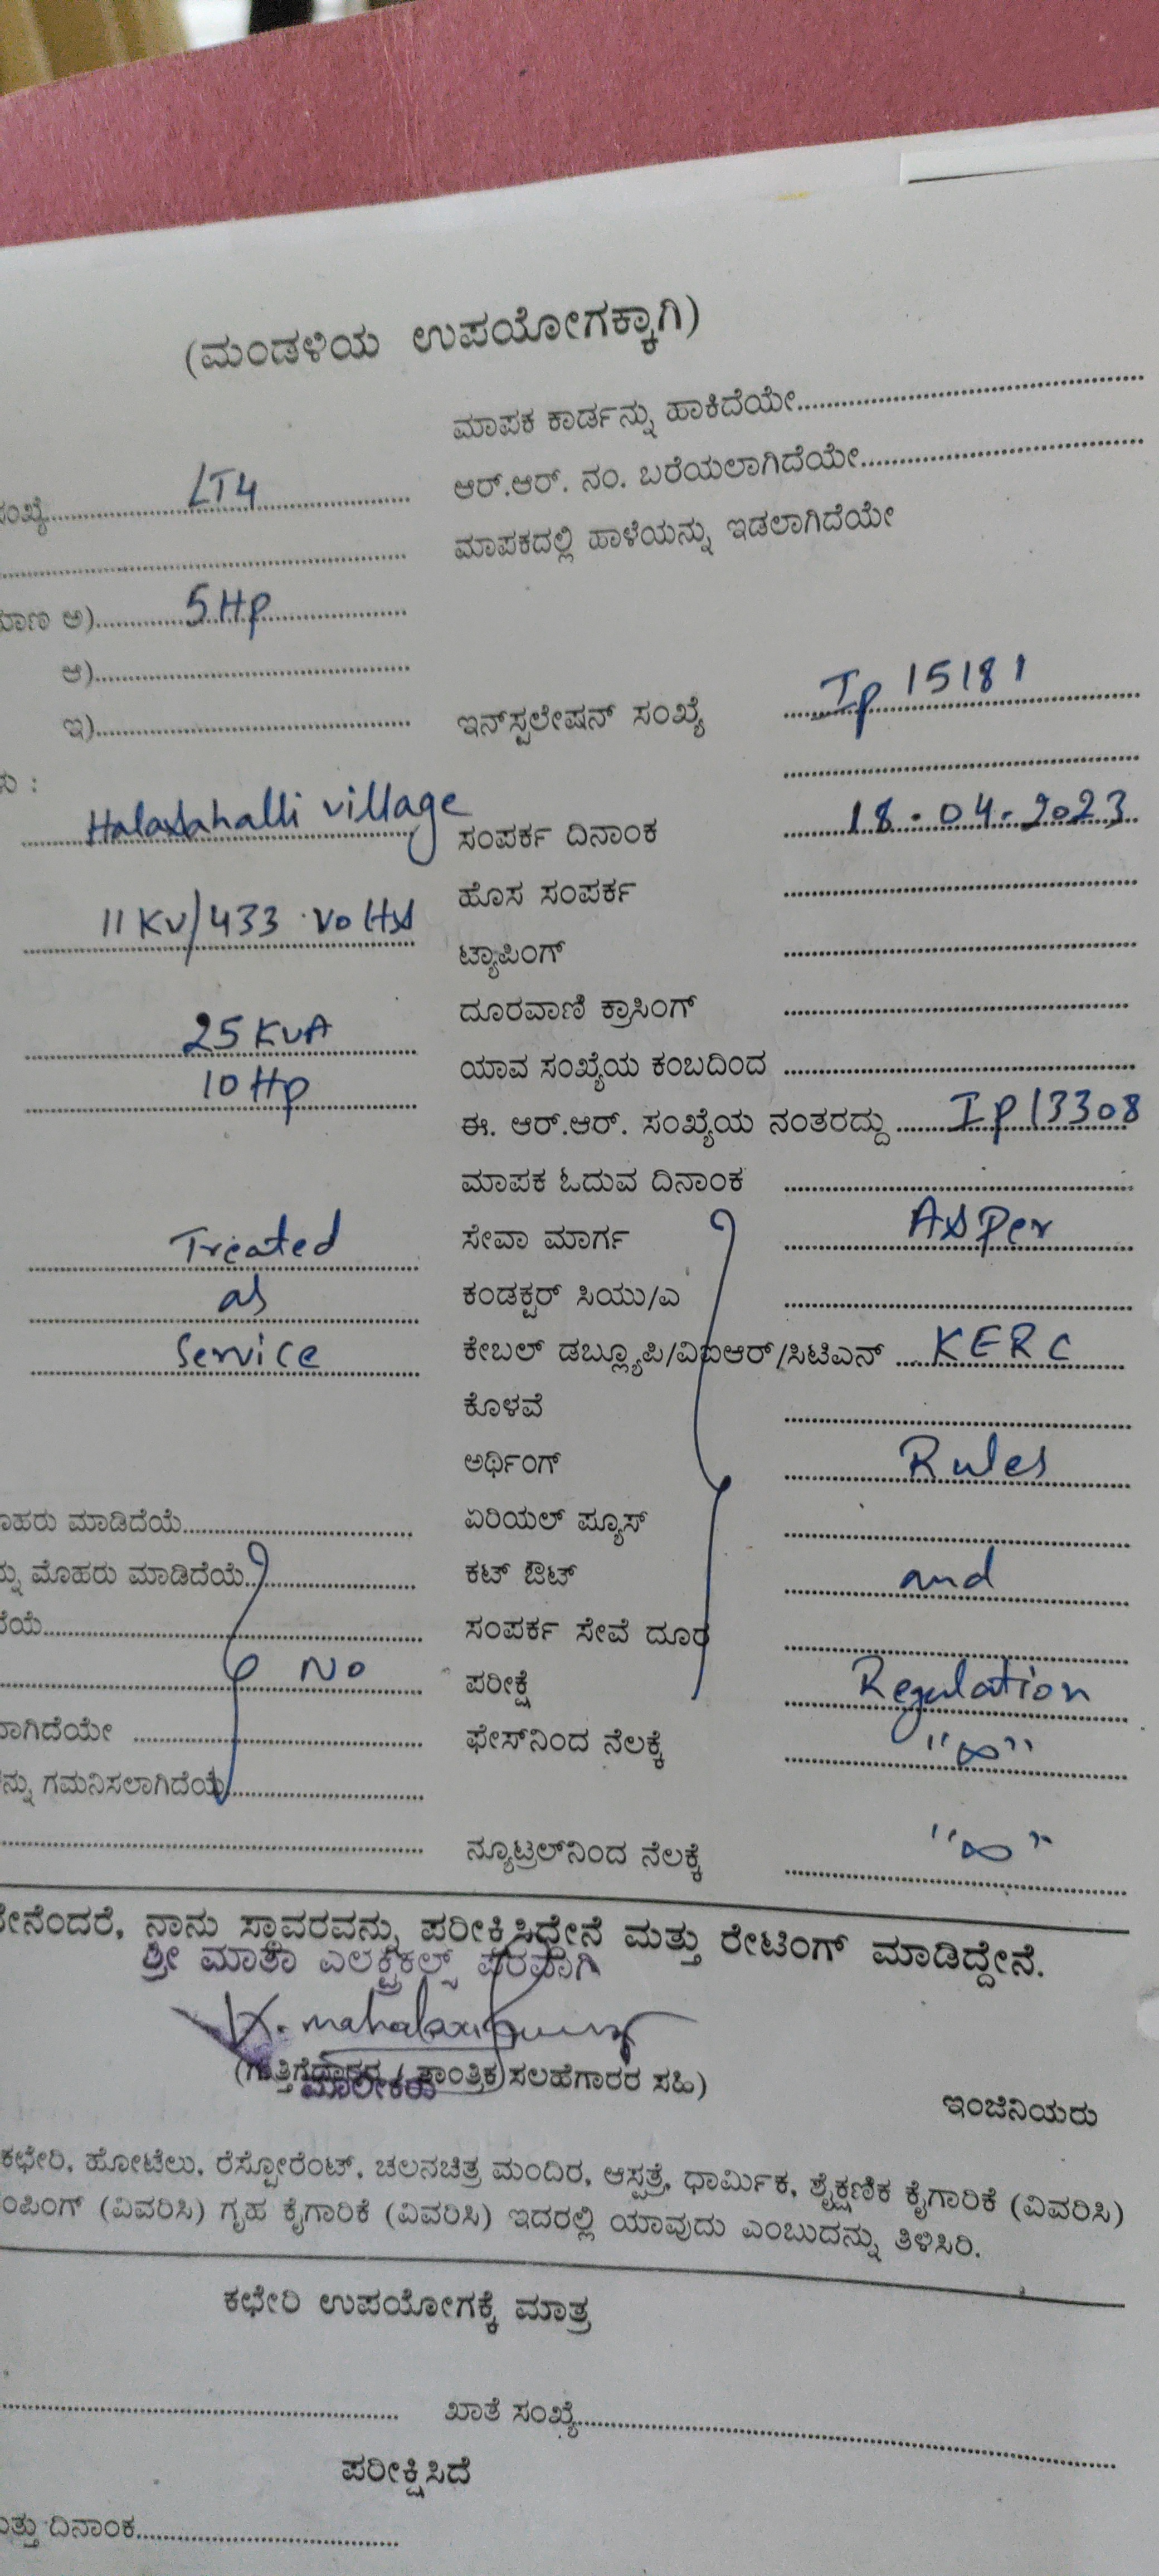 (ಮಂಡಳಿಯ ಉಪಯೋಗಕ್ಕಾಗಿ)
ಮಾಪಕ ಕಾರ್ಡನ್ನು ಹಾಕಿದೆಯೇ
ಸಂಖ್ಯೆ LT4 ಆರ್.ಆರ್. ನಂ. ಬರೆಯಲಾಗಿದೆಯೇ
ಮಾಪಕದಲ್ಲಿ ಹಾಳೆಯನ್ನು ಇಡಲಾಗಿದೆಯೇ
ಅ) 5 Hp
ಆ)
ಇ) ಇನ್‌ಸ್ಪಲೇಷನ್ ಸಂಖ್ಯೆ Ip 15181
village ಸಂಪರ್ಕ ದಿನಾಂಕ 18-04-2023
ಹೊಸ ಸಂಪರ್ಕ
11 KV/433 Volts ಟ್ಯಾಪಿಂಗ್
25 KVA ದೂರವಾಣಿ ಕ್ರಾಸಿಂಗ್
10 Hp ಯಾವ ಸಂಖ್ಯೆಯ ಕಂಬದಿಂದ
ಈ. ಆರ್.ಆರ್. ಸಂಖ್ಯೆಯ ನಂತರದ್ದು Ip 13308
ಮಾಪಕ ಓದುವ ದಿನಾಂಕ
Treated ಸೇವಾ ಮಾರ್ಗ As per
as ಕಂಡಕ್ಟರ್ ಸಿಯು/ಎ
Service ಕೇಬಲ್ ಡಬ್ಲ್ಯೂಪಿ/ವಿಐಆರ್/ಸಿಟಿಎನ್ KERC
ಕೊಳವೆ
ಅರ್ಥಿಂಗ್ Rules
ಮೊಹರು ಮಾಡಿದೆಯೆ ಏರಿಯಲ್ ಪ್ಯೂಸ್
ಮೊಹರು ಮಾಡಿದೆಯೆ ಕಟ್ ಔಟ್ and
ಸಂಪರ್ಕ ಸೇವೆ ದೂರ
No ಪರೀಕ್ಷೆ Regulation
ಫೇಸ್‌ನಿಂದ ನೆಲಕ್ಕೆ "∞"
ಗಮನಿಸಲಾಗಿದೆಯೆ
ನ್ಯೂಟ್ರಲ್‌ನಿಂದ ನೆಲಕ್ಕೆ "∞"
ನಾನು ಸ್ಥಾವರವನ್ನು ಪರೀಕ್ಷಿಸಿದ್ದೇನೆ ಮತ್ತು ರೇಟಿಂಗ್ ಮಾಡಿದ್ದೇನೆ.
ಶ್ರೀ ಮಾತಾ ಎಲಕ್ಟ್ರಿಕಲ್ಸ್ ಪರವಾಗಿ
(ಗುತ್ತಿಗೆದಾರರ / ತಾಂತ್ರಿಕ ಸಲಹೆಗಾರರ ಸಹಿ)
ಮಾಲೀಕರು
ಇಂಜಿನಿಯರು
ಕಛೇರಿ, ಹೋಟೆಲು, ರೆಸ್ಟೋರೆಂಟ್, ಚಲನಚಿತ್ರ ಮಂದಿರ, ಆಸ್ಪತ್ರೆ, ಧಾರ್ಮಿಕ, ಶೈಕ್ಷಣಿಕ ಕೈಗಾರಿಕೆ (ವಿವರಿಸಿ)
ಪಂಪಿಂಗ್ (ವಿವರಿಸಿ) ಗೃಹ ಕೈಗಾರಿಕೆ (ವಿವರಿಸಿ) ಇದರಲ್ಲಿ ಯಾವುದು ಎಂಬುದನ್ನು ತಿಳಿಸಿರಿ.
ಕಛೇರಿ ಉಪಯೋಗಕ್ಕೆ ಮಾತ್ರ
ಖಾತೆ ಸಂಖ್ಯೆ
ಪರೀಕ್ಷಿಸಿದೆ
ಮತ್ತು ದಿನಾಂಕ